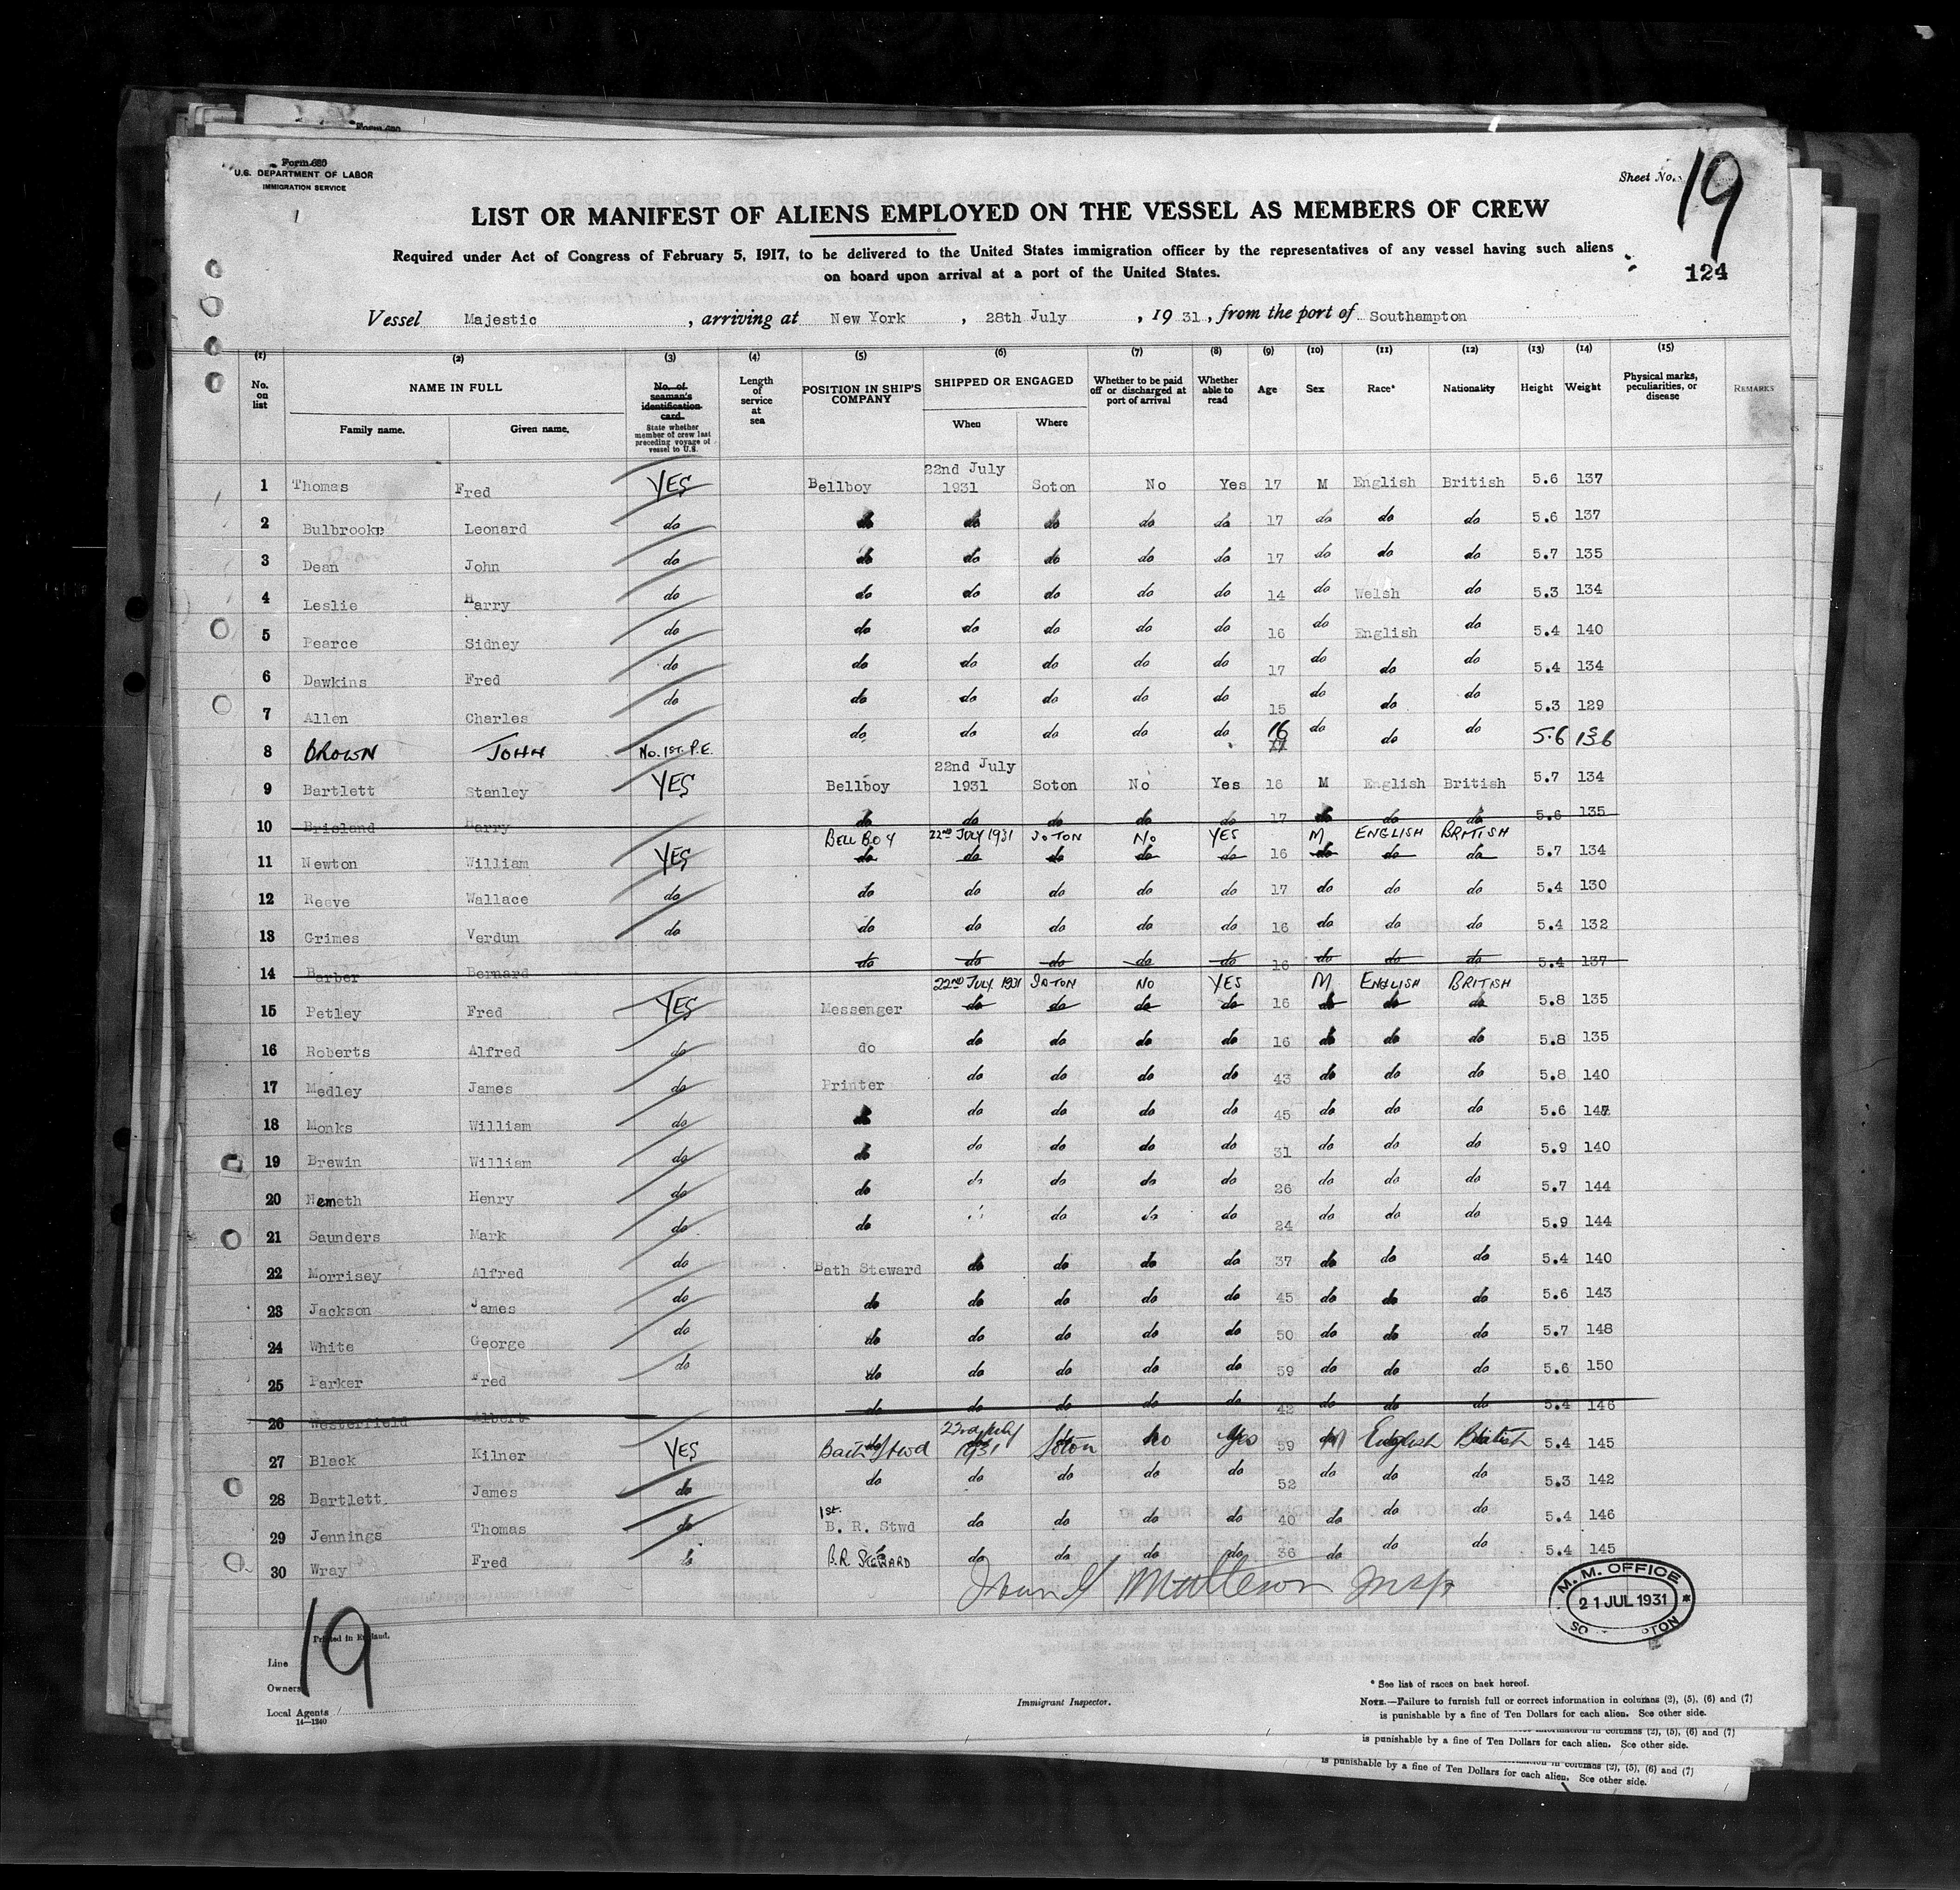 Form 680
U.S. DEPARTMENT OF LABOR
IMMIGRATION SERVICE
Sheet No. 19
124
LIST OR MANIFEST OF ALIENS EMPLOYED ON THE VESSEL AS MEMBERS OF CREW
Required under Act of Congress of February 5, 1917, to be delivered to the United States immigration officer by the representatives of any vessel having such aliens
on board upon arrival at a port of the United States.
Vessel Majestic, arriving at New York, 28th July, 1931, from the port of Southampton
(1) (2) (3) (4) (5) (6) (7) (8) (9) (10) (11) (12) (13) (14) (15)
No. on list NAME IN FULL Family name. Given name. No. of seaman's identification card. State whether member of crew last preceding voyage of vessel to U.S. Length of service at sea POSITION IN SHIP'S COMPANY SHIPPED OR ENGAGED When Where Whether to be paid off or discharged at port of arrival Whether able to read Age Sex Race* Nationality Height Weight Physical marks, peculiarities, or disease REMARKS
1 Thomas Fred YES Bellboy 22nd July 1931 Soton No Yes 17 M English British 5.6 137
2 Bulbrooke Leonard do do do do do do 17 do do do 5.6 137
3 Dean John do do do do do do 17 do do do 5.7 135
4 Leslie Harry do do do do do do 14 do Welsh do 5.3 134
5 Pearce Sidney do do do do do do 16 do English do 5.4 140
6 Dawkins Fred do do do do do do 17 do do do 5.4 134
7 Allen Charles do do do do do do 15 do do do 5.3 129
8 BROWN JOHN No. 1ST. P.E. do do do do do 16 do do do 5.6 136
9 Bartlett Stanley YES Bellboy 22nd July 1931 Soton No Yes 16 M English British 5.7 134
10 Brisland Harry do do do do do 17 do do do 5.6 135
BELL BOY 22ND JULY 1931 SOTON NO YES M ENGLISH BRITISH
11 Newton William YES do do do do do 16 do do do 5.7 134
12 Reeve Wallace do do do do do do 17 do do do 5.4 130
13 Grimes Verdun do do do do do do 16 do do do 5.4 132
14 Barber Bernard do do do do do 16 do do do 5.4 137
22ND JULY 1931 SOTON NO YES M ENGLISH BRITISH
15 Petley Fred YES Messenger do do do do 16 do do do 5.8 135
16 Roberts Alfred do do do do do do 16 do do do 5.8 135
17 Medley James do Printer do do do do 43 do do do 5.8 140
18 Monks William do do do do do do 45 do do do 5.6 147
19 Brewin William do do do do do do 31 do do do 5.9 140
20 Nemeth Henry do do do do do do 26 do do do 5.7 144
21 Saunders Mark do do do do do 24 do do do 5.9 144
22 Morrisey Alfred do Bath Steward do do do do 37 do do do 5.4 140
23 Jackson James do do do do do do 45 do do do 5.6 143
24 White George do do do do do do 50 do do do 5.7 148
25 Parker Fred do do do do do do 59 do do do 5.6 150
26 Westerfield Albert do do do do do 42 do do do 5.4 146
27 Black Kilner YES Bath Stwd 23rd July 1931 Soton No Yes 59 M English British 5.4 145
28 Bartlett James do do do do do do 52 do do do 5.3 142
29 Jennings Thomas do 1st. B. R. Stwd do do do do 40 do do do 5.4 146
30 Wray Fred do B.R. STEWARD do do do do 36 do do do 5.4 145
Matteson Insp
M. M. OFFICE
21 JUL 1931
19
Printed in England.
Line
Owners
Local Agents
14—1240
Immigrant Inspector.
* See list of races on back hereof.
NOTE.—Failure to furnish full or correct information in columns (2), (5), (6) and (7)
is punishable by a fine of Ten Dollars for each alien. See other side.
information in columns (2), (5), (6) and (7)
is punishable by a fine of Ten Dollars for each alien. See other side.
in columns (2), (5), (6) and (7)
is punishable by a fine of Ten Dollars for each alien. See other side.